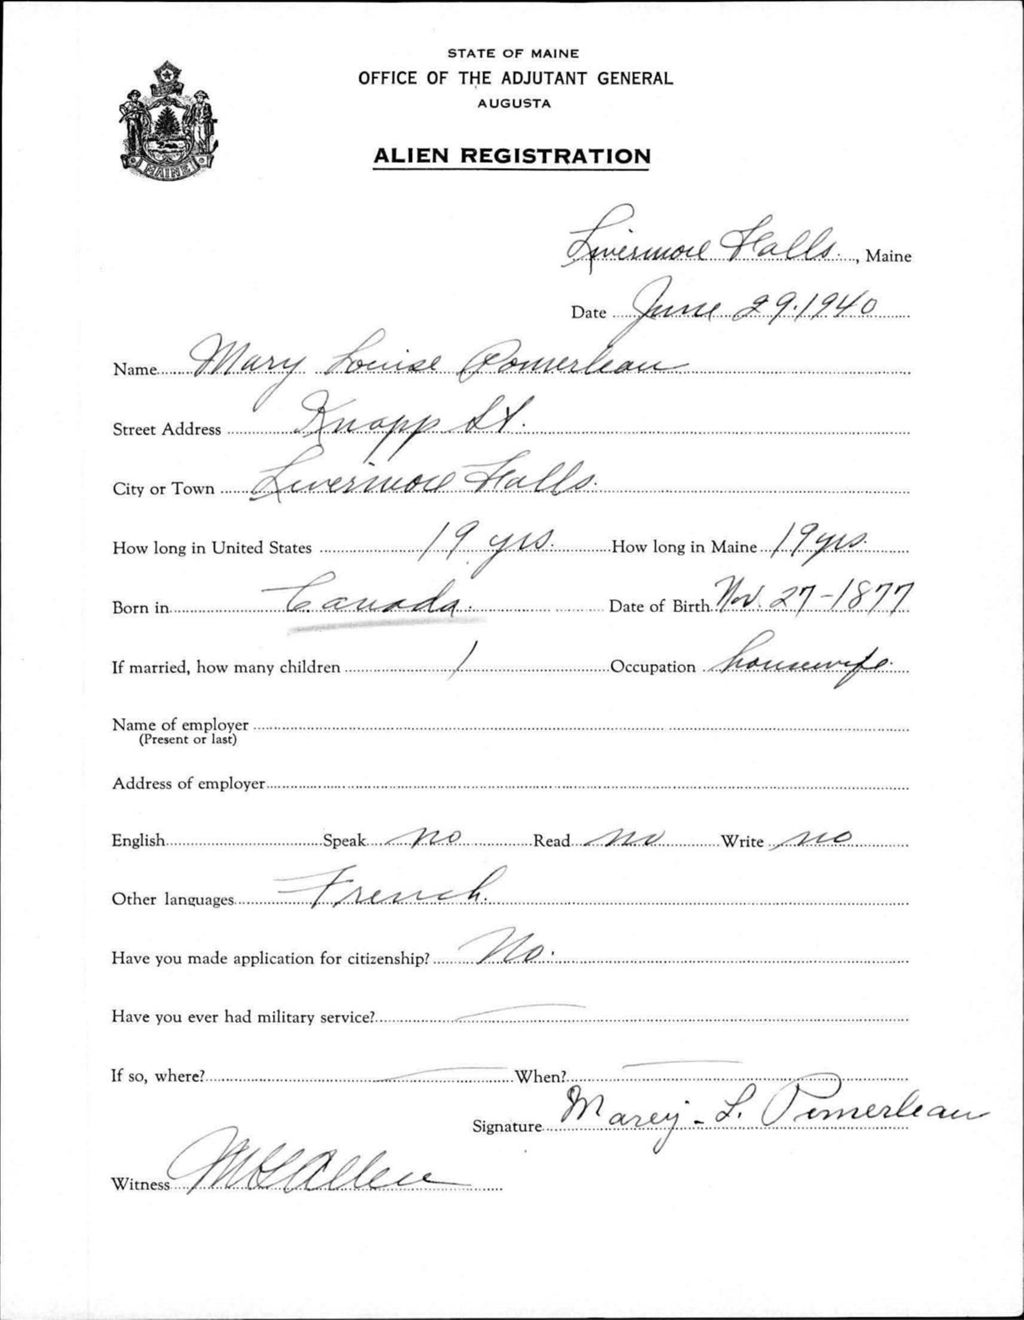 STATE OF MAINE
OFFICE OF THE ADJUTANT GENERAL
AUGUSTA
MAINE
ALIEN REGISTRATION
Livermore Falls., Maine
Date June 29.1940
Name Mary Louise Pomerleau
Street Address Knapp St.
City or Town Livermore Falls.
How long in United States 19 yrs. How long in Maine 19 yrs.
Born in Canada. Date of Birth Nov. 27-1877
If married, how many children 1 Occupation housewife.
Name of employer
(Present or last)
Address of employer
English Speak no Read no Write no
Other languages French.
Have you made application for citizenship? No.
Have you ever had military service? —
If so, where? — When? —
Signature Marey - L. Pomerleau
Witness Allen